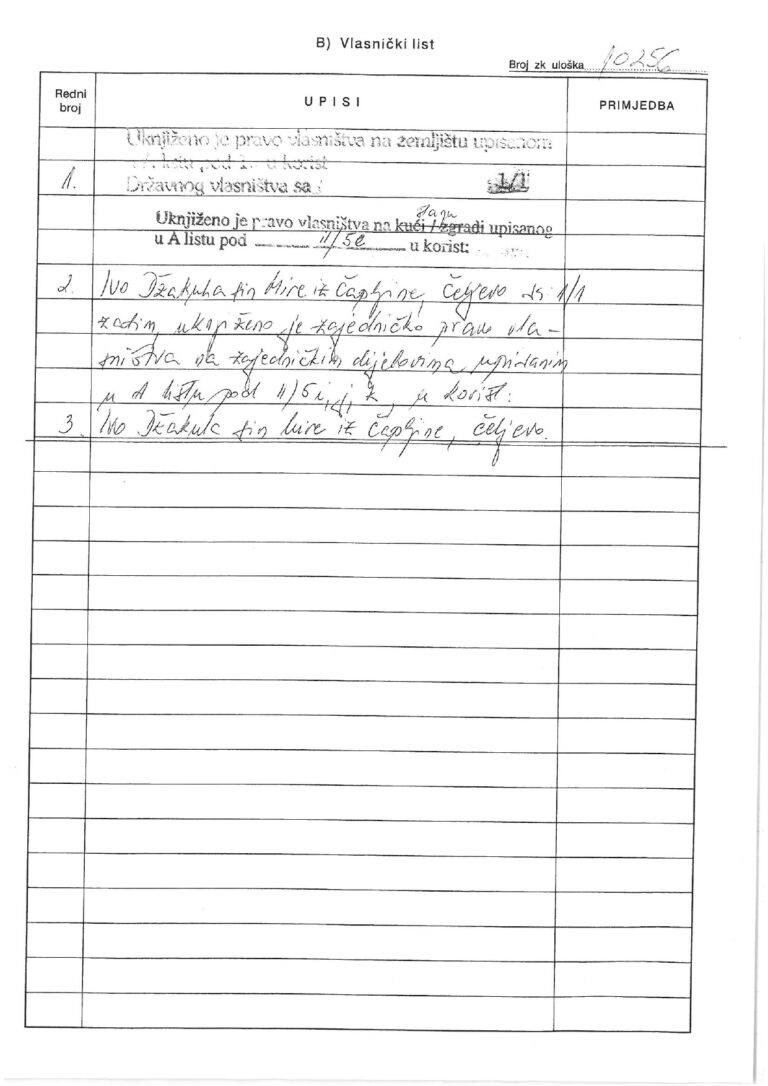 B) Vlasnički list
Broj zk uloška 10256
Redni broj
UPISI
PRIMJEDBA
Uknjiženo je pravo vlasništva na zemljištu upisanom
listu pod u korist
1.
Državnog vlasništva sa 1/1
Uknjiženo je pravo vlasništva na kući / zgradi upisanog
u A listu pod II/5e u korist:
2. Ivo Džakula sin Mire iz Čapljine, Čeljevo sa 1/1
zatim, uknjiženo je zajedničko pravo vla-
sništva na zajedničkim dijelovima, upisanim
u A listu pod II/5 i, j, k, u korist:
3. Ivo Džakula sin Mire iz Čapljine, Čeljevo.